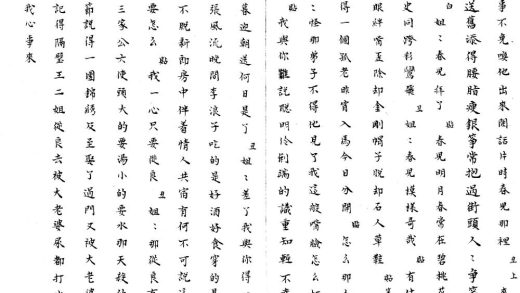 事不免喚他出來閑話片時春兒那裡 丑上
送舊添得腰肢瘦銀箏常抱過街頭人：爭
白 姐：春兒拜了 貼 春兒明月春常在碧桃花
史同跨彩鸞 丑 姐：春兒模樣奇 貼 有什
眼眸嘴歪除却金剛帽子脫却石人草鞋 貼
得一個孤老昨宵入馬今日分開 貼 怎么那
：怪那弟子不得他見了我這般嘴臉怎么
貼 我與你雖說聰明伶俐端的識重知輕不
暮迎朝送何日是了 丑 姐：差了我與你得
張風流晚間李浪子吃的是好酒好食穿的是
不脫新郎房中伴着情人共宿有何不可說這
要怎么 貼 我一心只要從良 丑 姐：那從良
三家公六使頭大的要湯小的要水那天殺
節說得一團錦綉及至娶了過門又被大老婆
記得隔壁王二姐從良去被大老婆尿都打
我心事來